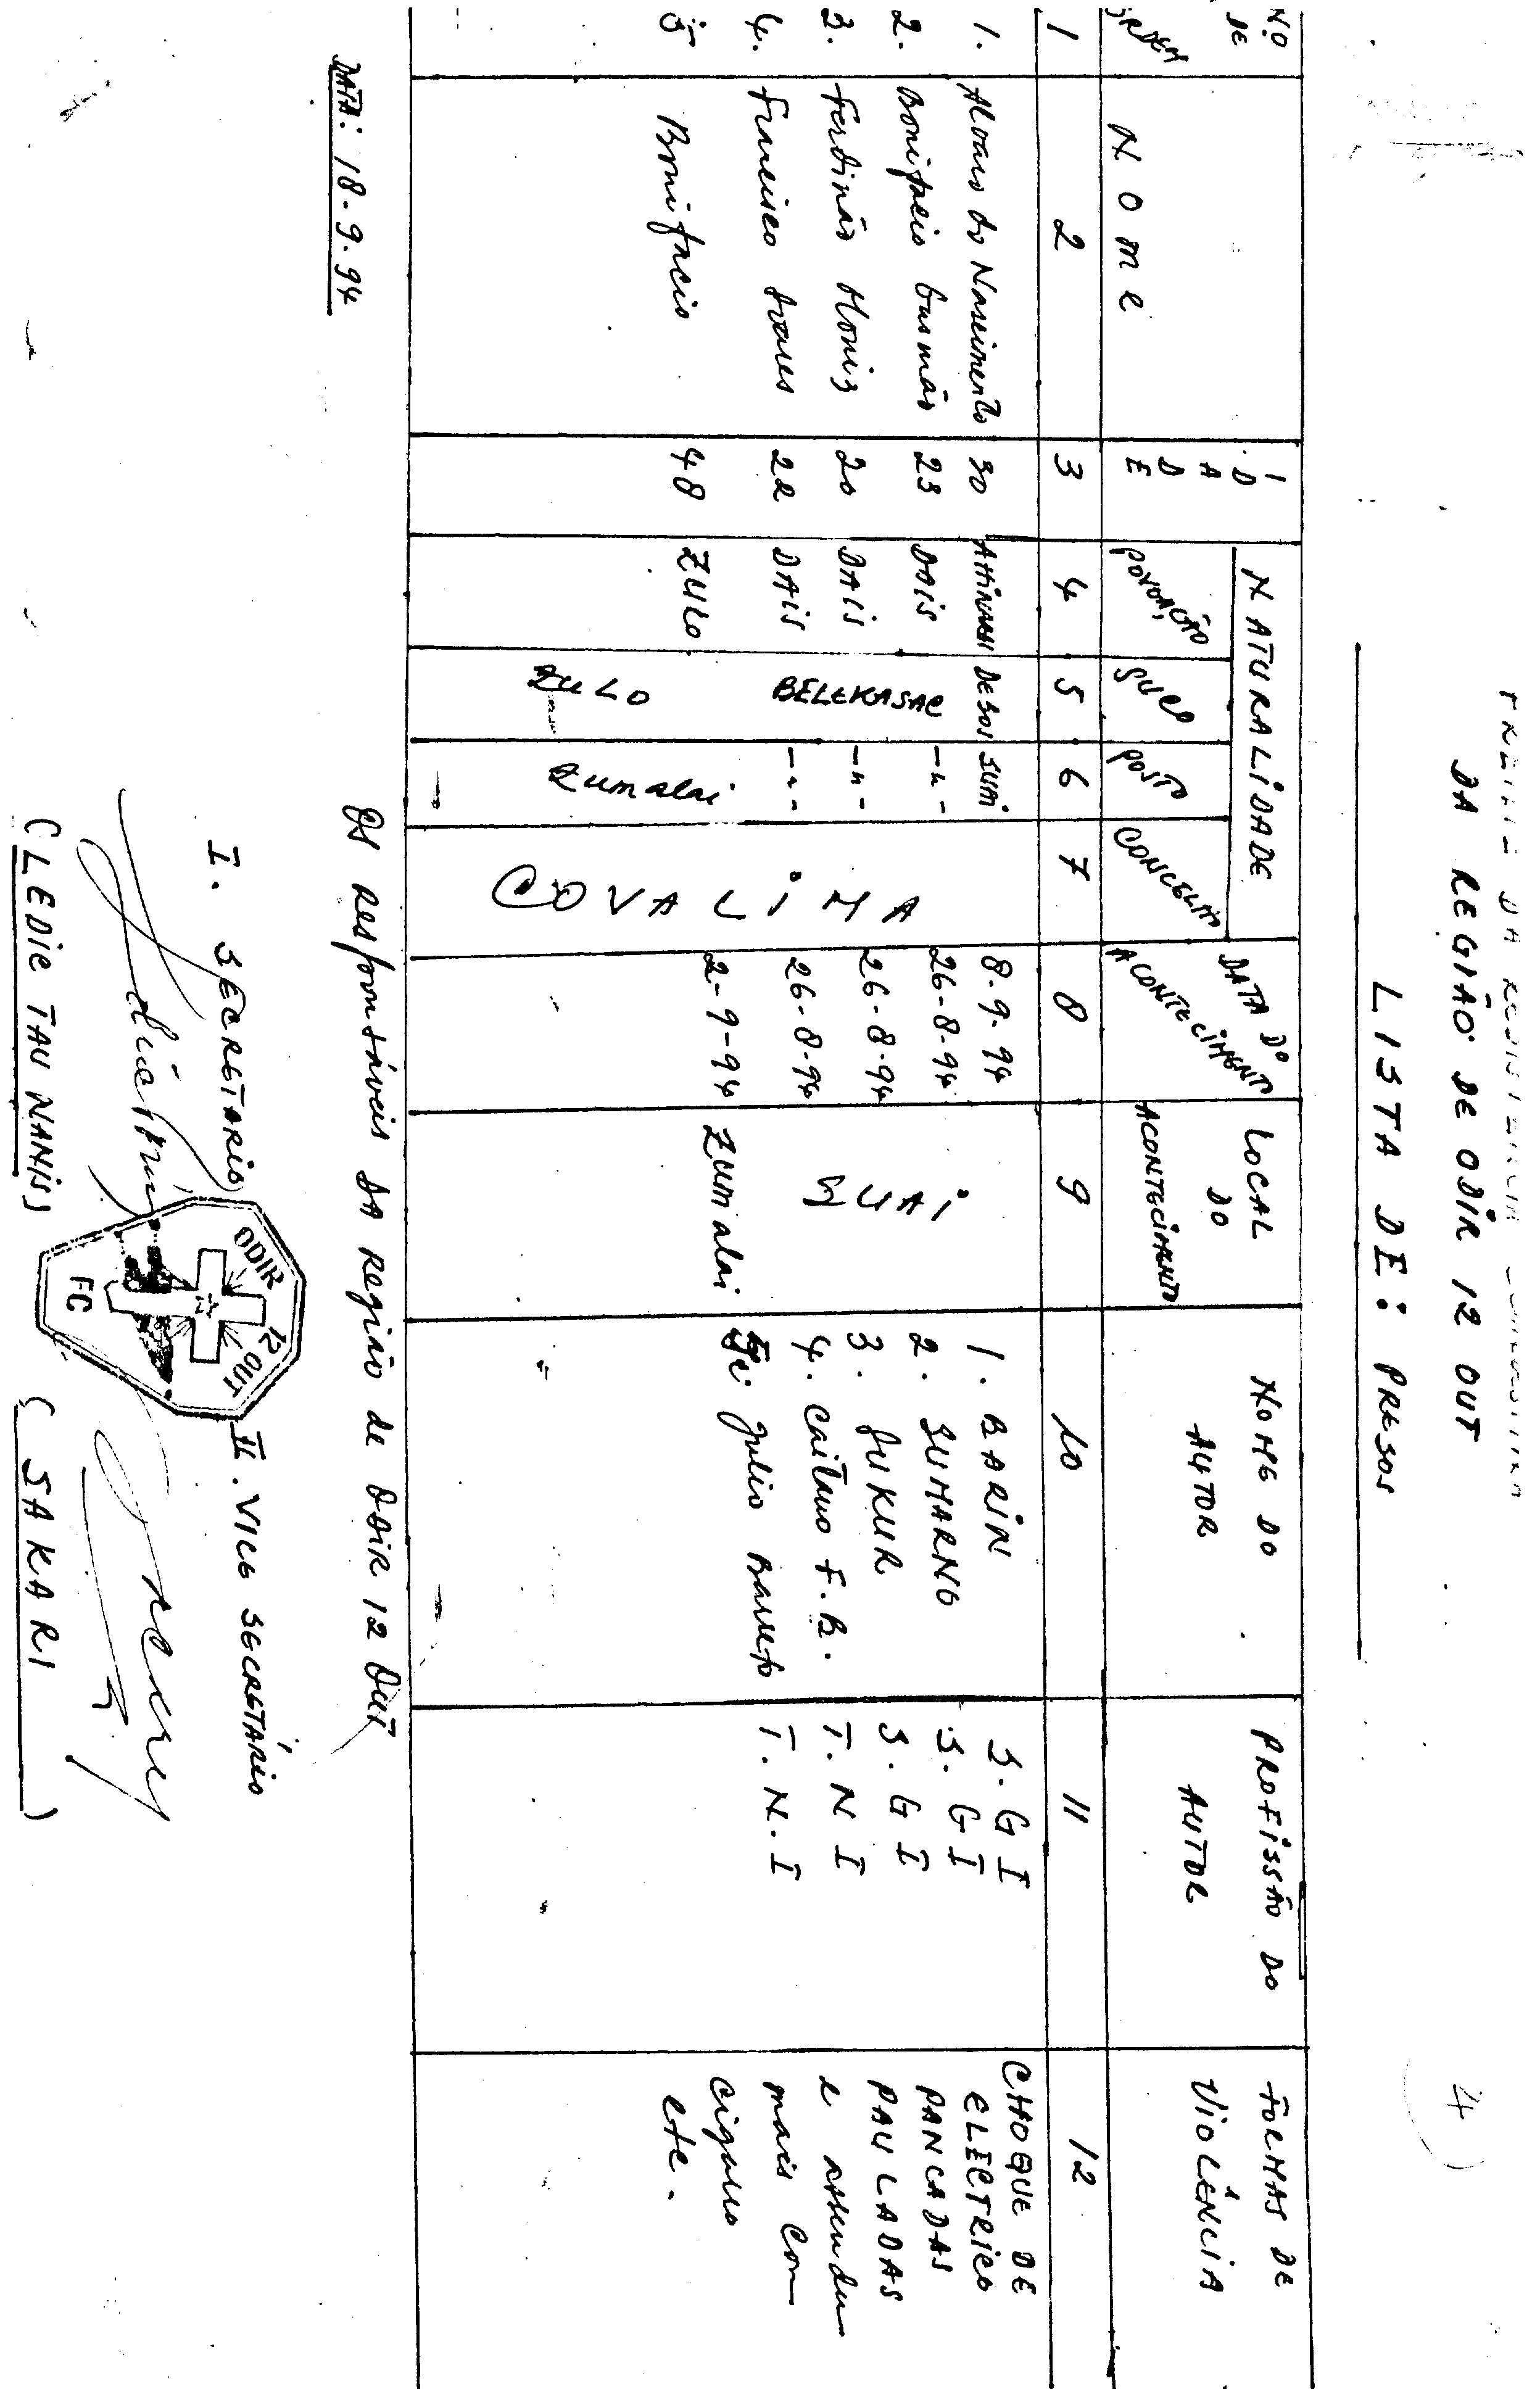 FRENTE DA RESISTÊNCIA CLANDESTINA
DA REGIÃO DE ODIR 12 OUT
4
LISTA DE: PRESOS
NO DE ORDEM | Nome | IDADE | NATURALIDADE | DATA DO ACONTECIMENTO | LOCAL DO ACONTECIMENTO | NOME DO AUTOR | PROFISSÃO DO AUTOR | FORMAS DE VIOLÊNCIA
POVOAÇÃO | SUCO | POSTO | CONCELHO
1 | 2 | 3 | 4 | 5 | 6 | 7 | 8 | 9 | 10 | 11 | 12
1. | Alvaro do Nascimento | 30 | DESOI | SUAI | 8-9-94 | 1. BARIN | S.GI | CHOQUE DE ELECTRICO
2. | Bonifacio Gusmão | 23 | DAIS | BELEKASAC | -"- | COVALIMA | 26-8-94 | SUAI | 2. SUMARNO | S.GI | PANCADAS
3. | Ferdinão Moniz | 20 | DAIS | -"- | 26-8-94 | 3. JUKUR | S.GI | PAULADAS
4. | Francisco Soares | 22 | DAIS | -"- | 26-8-94 | 4. Caitano F.B. | T.NI | e
mais com
5 | Bonifacio | 48 | ZULO | ZULO | Zumalai | 2-9-94 | Zumalai | Julio Barreto | T.N.I | cigarro
etc.
DATA: 18.9.94
Os responsáveis da Região de ODIR 12 OUT
I. SECRETARIO
II. VICE SECRETÁRIO
ODIR 12 OUT
FC
(LEDIE TAU NANIS)
(SAKARI)